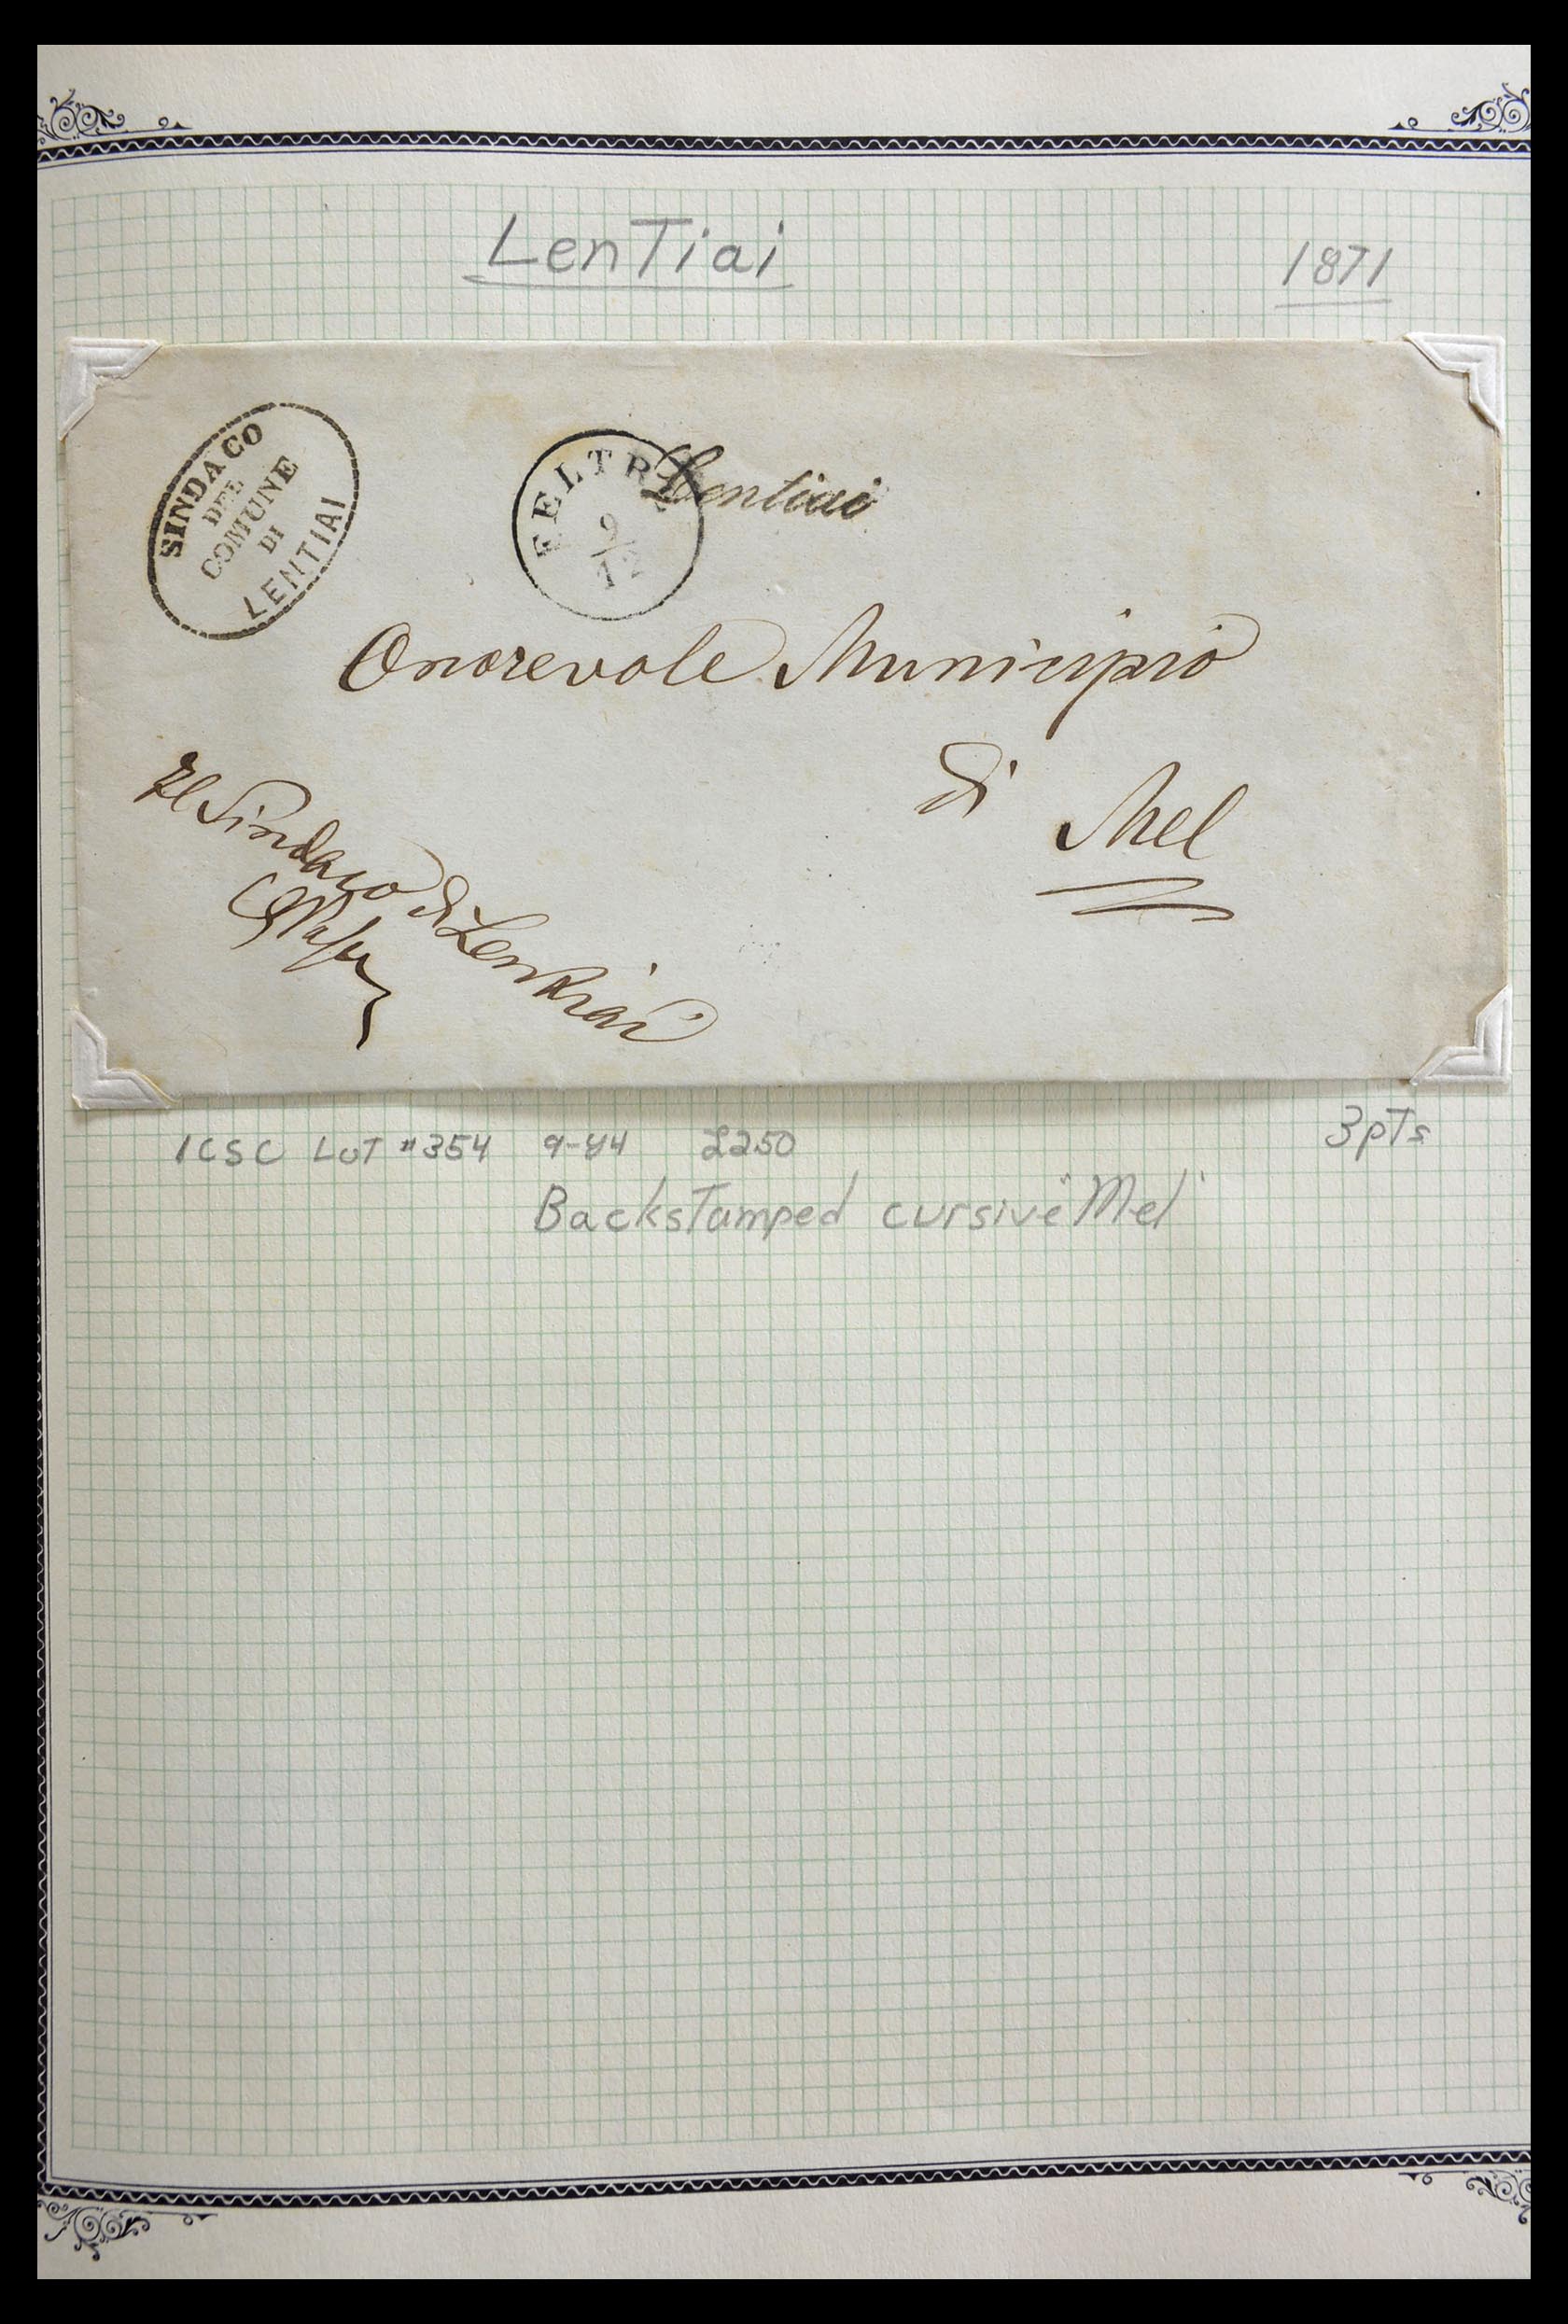 LenTiai
1871
SINDACO
DEL
COMUNE
DI
LENTIAI
FELTRE
9
12
Lentiai
Onorevole Municipio
di Mel
Il Sindaco di Lentiai
ICSC LOT #354 9-84 £250
3pTs
BacksTamped cursive "Mel"